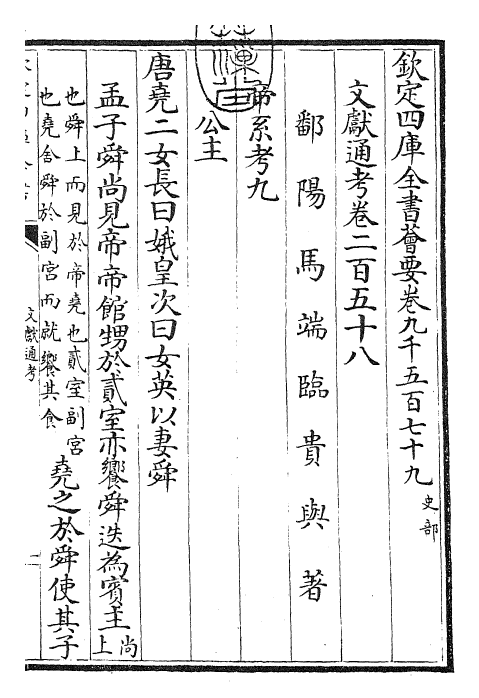 欽定四庫全書薈要卷九千五百七十九 史部
文獻通考卷二百五十八
鄱陽馬端臨貴與著
帝系考九
公主
唐堯二女長曰娥皇次曰女英以妻舜
孟子舜尚見帝帝館甥於貳室亦饗舜迭為賓主尚上
也舜上而見於帝堯也貳室副宮
也堯舍舜於副宮而就饗其食
堯之於舜使其子
文獻通考